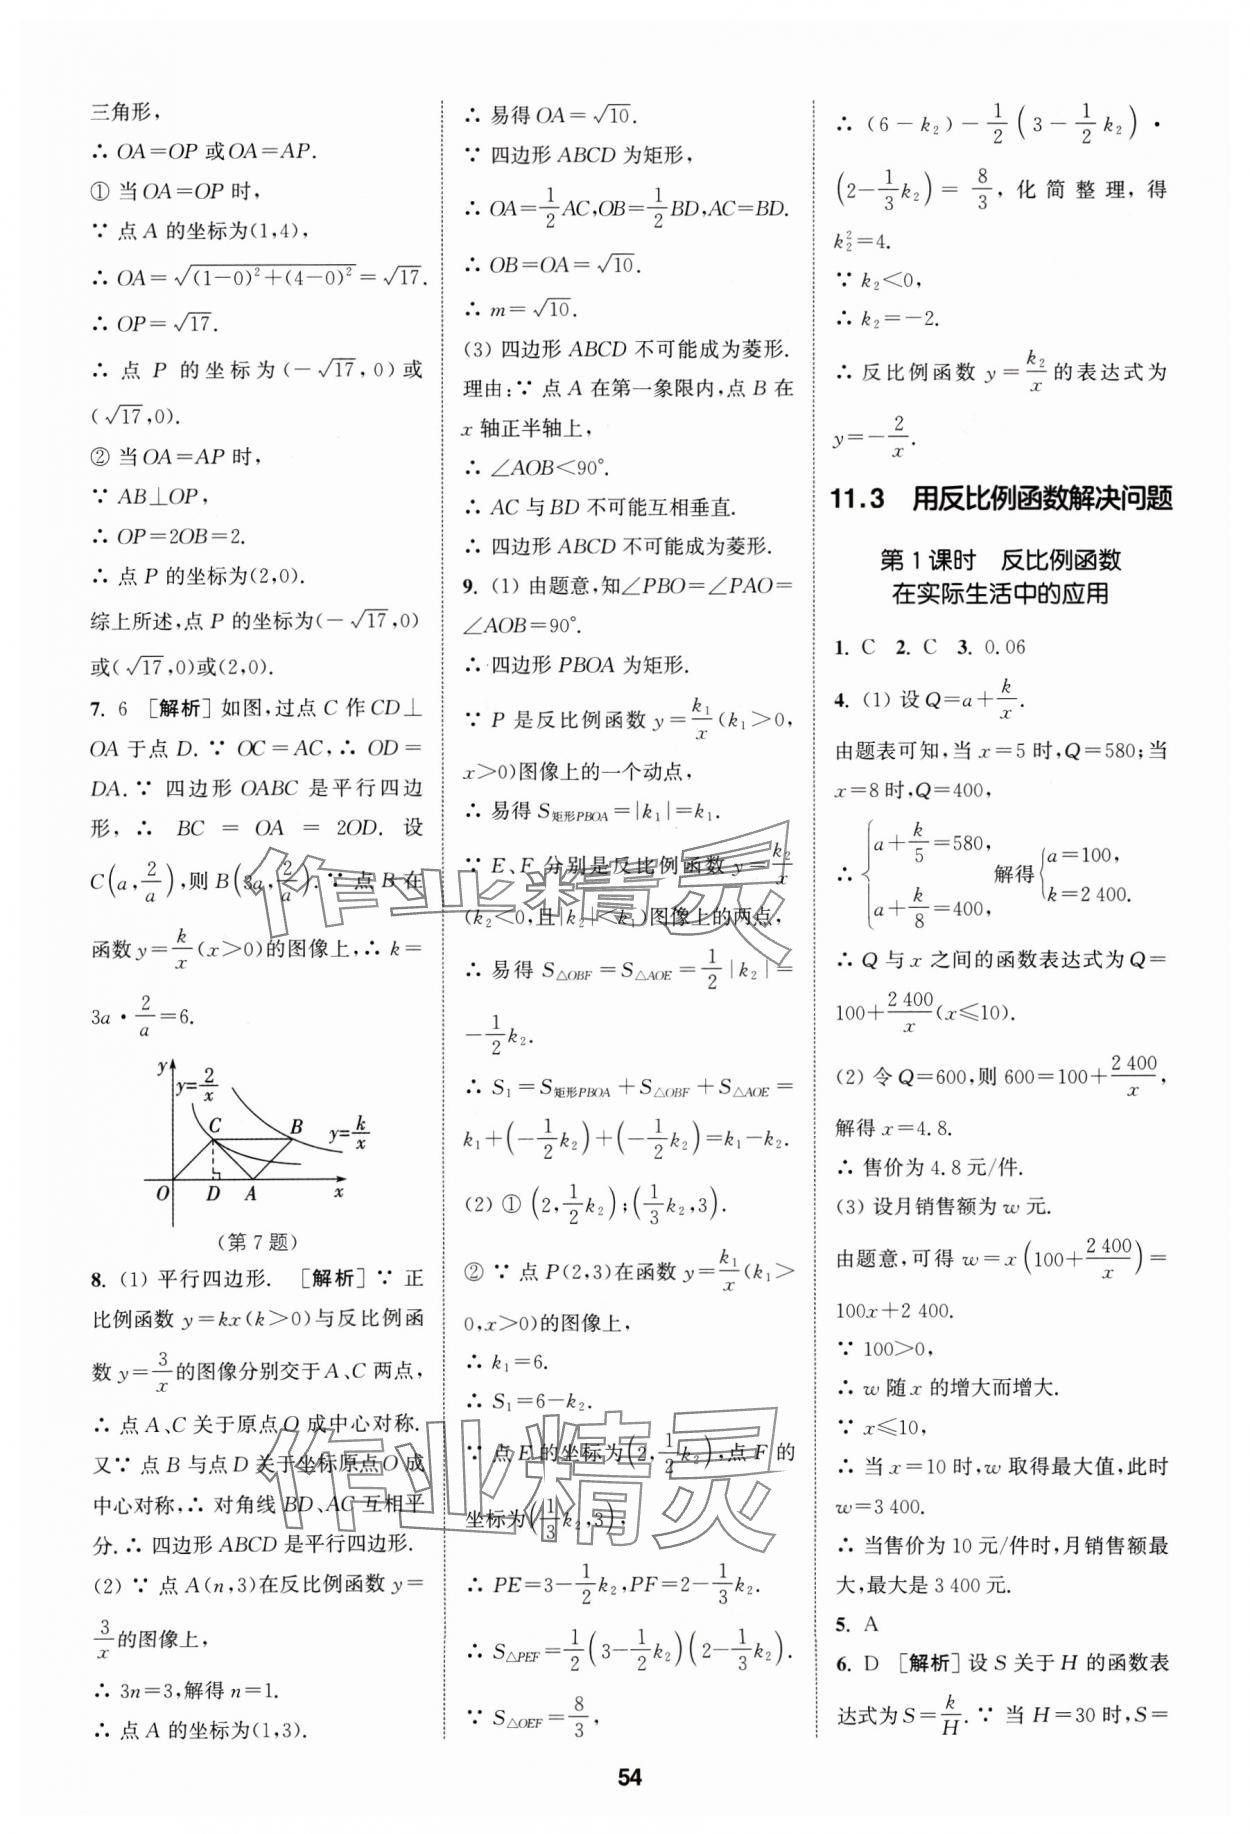 三角形，
∴ OA=OP 或OA=AP.
① 当OA=OP 时，
∵ 点 A 的坐标为(1,4)，
∴ OA=√((1-0)²+(4-0)²)=√17.
∴ OP=√17.
∴ 点 P 的坐标为(-√17,0)或
(√17,0).
② 当OA=AP 时，
∵ AB⊥OP，
∴ OP=2OB=2.
∴ 点 P 的坐标为(2,0).
综上所述,点 P 的坐标为(-√17,0)
或(√17,0)或(2,0).
7. 6 [解析]如图,过点 C 作CD⊥
OA 于点 D. ∵ OC=AC,∴ OD=
DA. ∵ 四边形 OABC 是平行四边
形,∴ BC = OA = 2OD. 设
C(a,2/a),则 B(3a,2/a). ∵ 点 B 在
函数 y=k/x(x>0)的图像上,∴ k=
3a·2/a=6.
y
y=2/x
C
B
y=k/x
O D A x
(第 7 题)
8. (1) 平行四边形. [解析]∵ 正
比例函数 y=kx(k>0)与反比例函
数 y=3/x的图像分别交于A、C 两点，
∴ 点 A、C 关于原点 O 成中心对称.
又∵ 点 B 与点 D 关于坐标原点 O 成
中心对称,∴ 对角线 BD、AC 互相平
分. ∴ 四边形 ABCD 是平行四边形.
(2) ∵ 点 A(n,3)在反比例函数 y=
3/x的图像上，
∴ 3n=3,解得 n=1.
∴ 点 A 的坐标为(1,3).
∴ 易得 OA=√10.
∵ 四边形 ABCD 为矩形，
∴ OA=1/2AC,OB=1/2BD,AC=BD.
∴ OB=OA=√10.
∴ m=√10.
(3) 四边形 ABCD 不可能成为菱形.
理由:∵ 点 A 在第一象限内,点 B 在
x 轴正半轴上，
∴ ∠AOB<90°.
∴ AC 与 BD 不可能互相垂直.
∴ 四边形 ABCD 不可能成为菱形.
9. (1) 由题意,知∠PBO=∠PAO=
∠AOB=90°.
∴ 四边形 PBOA 为矩形.
∵ P 是反比例函数 y=k₁/x(k₁>0,
x>0)图像上的一个动点，
∴ 易得 S矩形PBOA=|k₁|=k₁.
∵ E、F 分别是反比例函数 y=k₂/x
(k₂<0,且|k₂|<k₁)图像上的两点，
∴ 易得 S△OBF=S△AOE=1/2|k₂|=
-1/2k₂.
∴ S₁=S矩形PBOA+S△OBF+S△AOE=
k₁+(-1/2k₂)+(-1/2k₂)=k₁-k₂.
(2) ① (2,1/2k₂);(1/3k₂,3).
② ∵ 点 P(2,3)在函数 y=k₁/x(k₁>
0,x>0)的图像上，
∴ k₁=6.
∴ S₁=6-k₂.
∵ 点 E 的坐标为(2,1/2k₂),点 F 的
坐标为(1/3k₂,3)，
∴ PE=3-1/2k₂,PF=2-1/3k₂.
∴ S△PEF=1/2(3-1/2k₂)(2-1/3k₂).
∵ S△OEF=8/3，
∴ (6-k₂)-1/2(3-1/2k₂)·
(2-1/3k₂)=8/3,化简整理,得
k₂²=4.
∵ k₂<0,
∴ k₂=-2.
∴ 反比例函数 y=k₂/x的表达式为
y=-2/x.
11.3 用反比例函数解决问题
第 1 课时 反比例函数
在实际生活中的应用
1. C 2. C 3. 0.06
4. (1) 设 Q=a+k/x.
由题表可知,当 x=5 时,Q=580;当
x=8 时,Q=400，
∴ {a+k/5=580, a+k/8=400, 解得{a=100, k=2 400.
∴ Q 与 x 之间的函数表达式为 Q=
100+2 400/x(x≤10).
(2) 令 Q=600,则 600=100+2 400/x，
解得 x=4.8.
∴ 售价为 4.8 元/件.
(3) 设月销售额为 w 元.
由题意,可得 w=x(100+2 400/x)=
100x+2 400.
∵ 100>0,
∴ w 随 x 的增大而增大.
∵ x≤10,
∴ 当 x=10 时,w 取得最大值,此时
w=3 400.
∴ 当售价为 10 元/件时,月销售额最
大,最大是 3 400 元.
5. A
6. D [解析]设 S 关于 H 的函数表
达式为 S=k/H. ∵ 当 H=30 时,S=
作业精灵
作业精灵
54